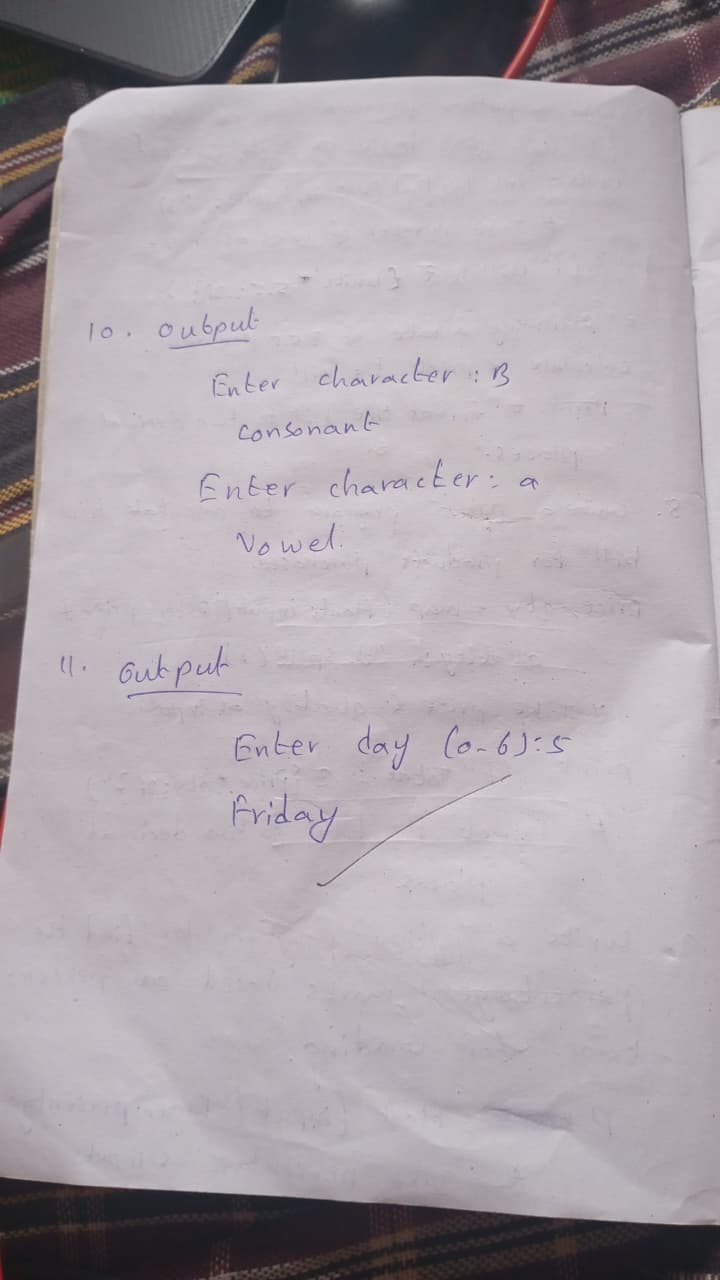 10. output
Enter character : B
consonant
Enter character : a
Vowel.
11. output
Enter day (0-6) : 5
Friday